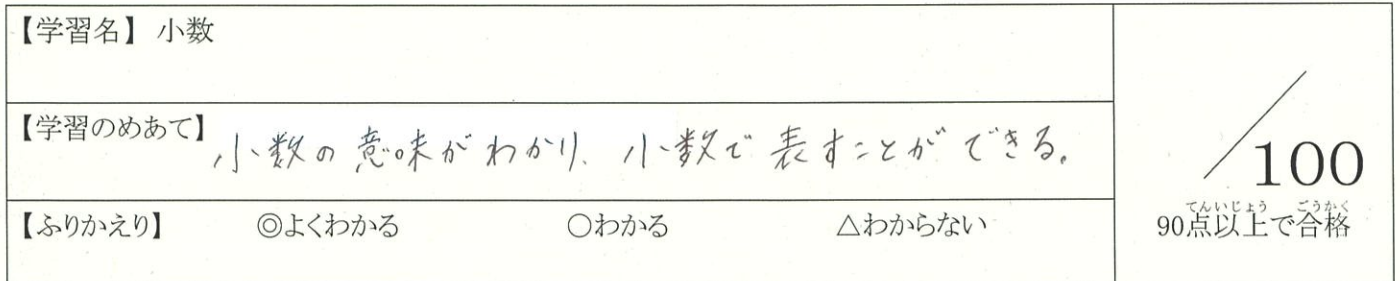 【学習名】 小数
【学習のめあて】 小数の意味がわかり、小数で表すことができる。
【ふりかえり】 ◎よくわかる ○わかる △わからない
／100
てんいじょう ごうかく
90点以上で合格